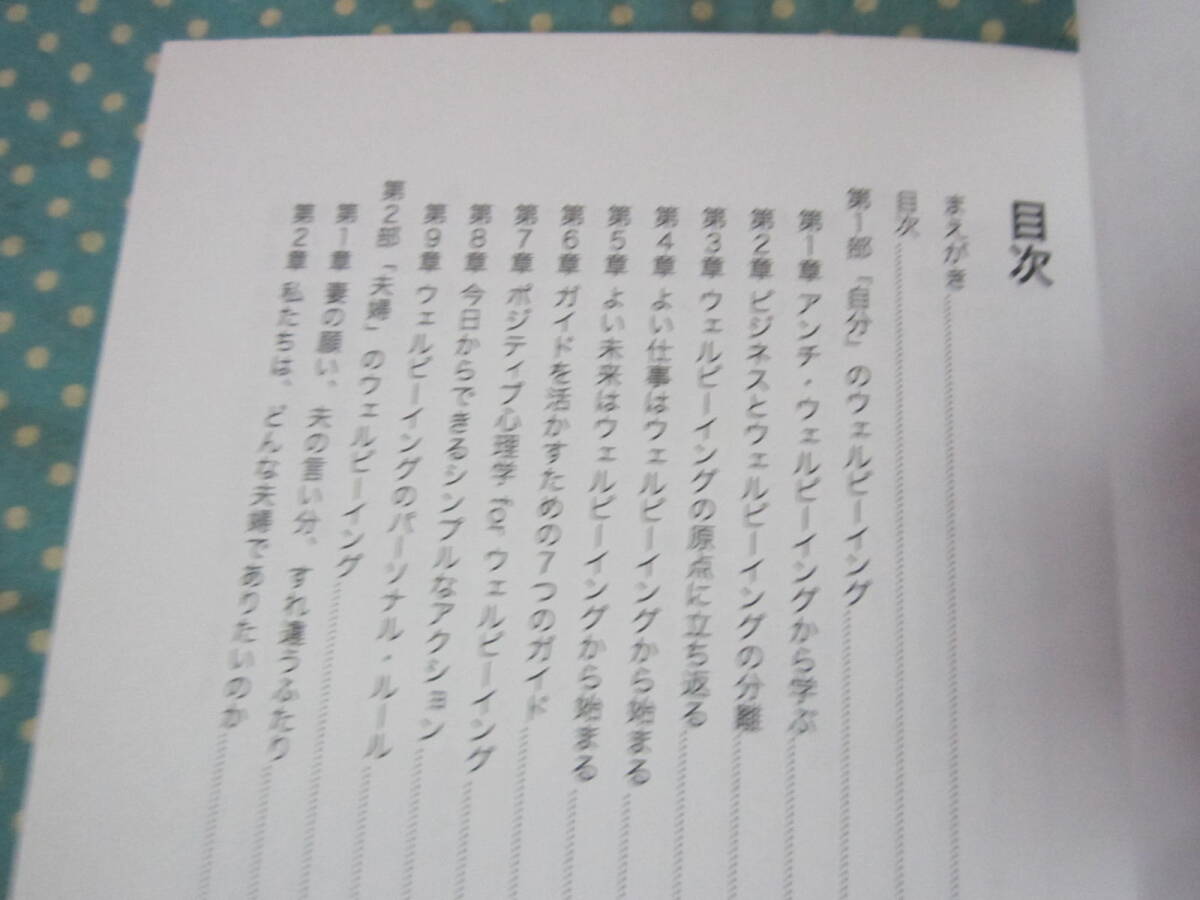 目次
まえがき
目次
第1部 「自分」のウェルビーイング
第1章 アンチ・ウェルビーイングから学ぶ
第2章 ビジネスとウェルビーイングの分離
第3章 ウェルビーイングの原点に立ち返る
第4章 よい仕事はウェルビーイングから始まる
第5章 よい未来はウェルビーイングから始まる
第6章 ガイドを活かすための7つのガイド
第7章 ポジティブ心理学 for ウェルビーイング
第8章 今日からできるシンプルなアクション
第9章 ウェルビーイングのパーソナル・ルール
第2部 「夫婦」のウェルビーイング
第1章 妻の願い、夫の言い分、すれ違うふたり
第2章 私たちは、どんな夫婦でありたいのか